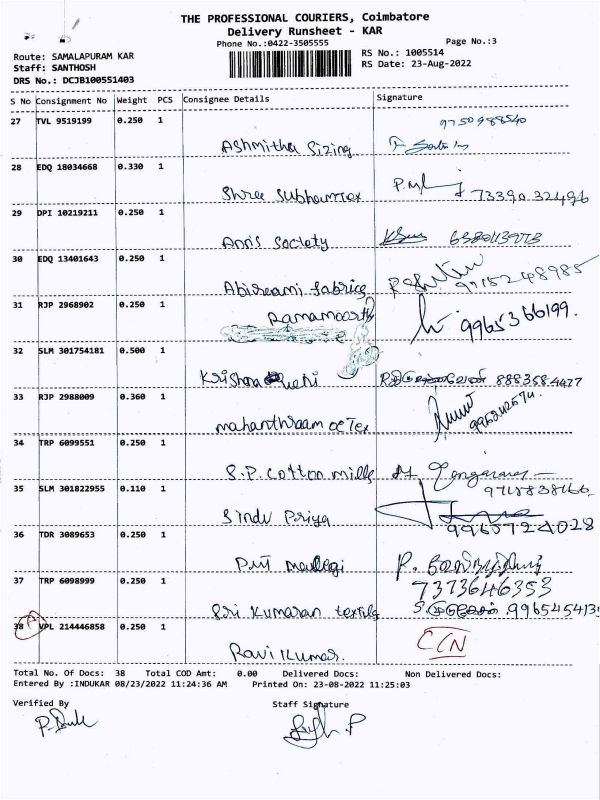 THE PROFESSIONAL COURIERS, Coimbatore
Delivery Runsheet - KAR
Phone No.:0422-3505555
Page No.:3
Route: SAMALAPURAM KAR
RS No.: 1005514
Staff: SANTHOSH
RS Date: 23-Aug-2022
DRS No.: DCJB100551403
S No Consignment No Weight PCS Consignee Details Signature
27 TVL 9519199 0.250 1 9750988540
Ashmitha Sizing
28 EDQ 18034668 0.330 1
Shree Subhamtex 73390 32496
29 DPI 10219211 0.250 1
Anns Society
30 EDQ 13401643 0.250 1
Abireami fabrics 9715248985
31 RJP 2968902 0.250 1
Ramamoorthy 9965366199.
32 SLM 301754181 0.500 1
Krishna 888358 4477
33 RJP 2988009 0.360 1
34 TRP 6099551 0.250 1
S.P. Cotton mills
35 SLM 301822955 0.110 1
Sindu Priya 9965724028
36 TDR 3089653 0.250 1
P.
37 TRP 6098999 0.250 1 7373646353
Sri Kumaran textils
38 VPL 214446858 0.250 1
Ravi Kumar. CCN
Total No. Of Docs: 38 Total COD Amt: 0.00 Delivered Docs: Non Delivered Docs:
Entered By :INDUKAR 08/23/2022 11:24:36 AM Printed On: 23-08-2022 11:25:03
Verified By Staff Signature